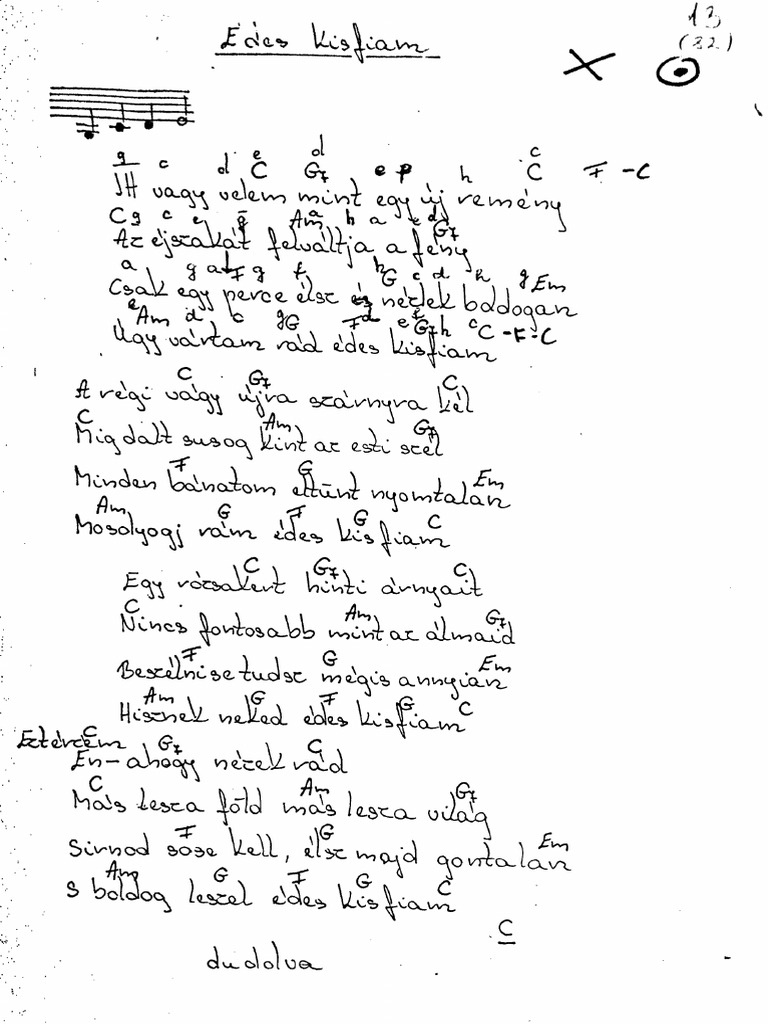 13
(32)
Édes kisfiam
g c d e C d G7 e h c C F - C
Itt vagy velem mint egy új remény
C g c e g Am a h a e d G7
Az éjszakát felváltja a fény
a g a F g f h G c d h g Em
Csak egy perce élsz és nézlek boldogan
e Am d c g G F d e G7 h c C - F - C
Úgy vártam rád édes kisfiam
C G7 C
A régi vágy újra szárnyra kél
C Am G7
Mig dalt susog kint az esti szél
F G Em
Minden bánatom eltűnt nyomtalan
Am G F G C
Mosolyogj rám édes kisfiam
C G7 C
Egy rózsakert hinti árnyait
C Am G7
Nincs fontosabb mint az álmaid
F G Em
Beszélni se tudsz mégis annyian
Am G F G C
Hisznek neked édes kisfiam
Eztérzem C G7 C
Én - ahogy nézek rád
C Am G7
Más lesz a föld más lesz a világ
F G Em
Sirnod sose kell, élsz majd gontalan
Am G F G C
S boldog leszel édes kisfiam
C
dudolva